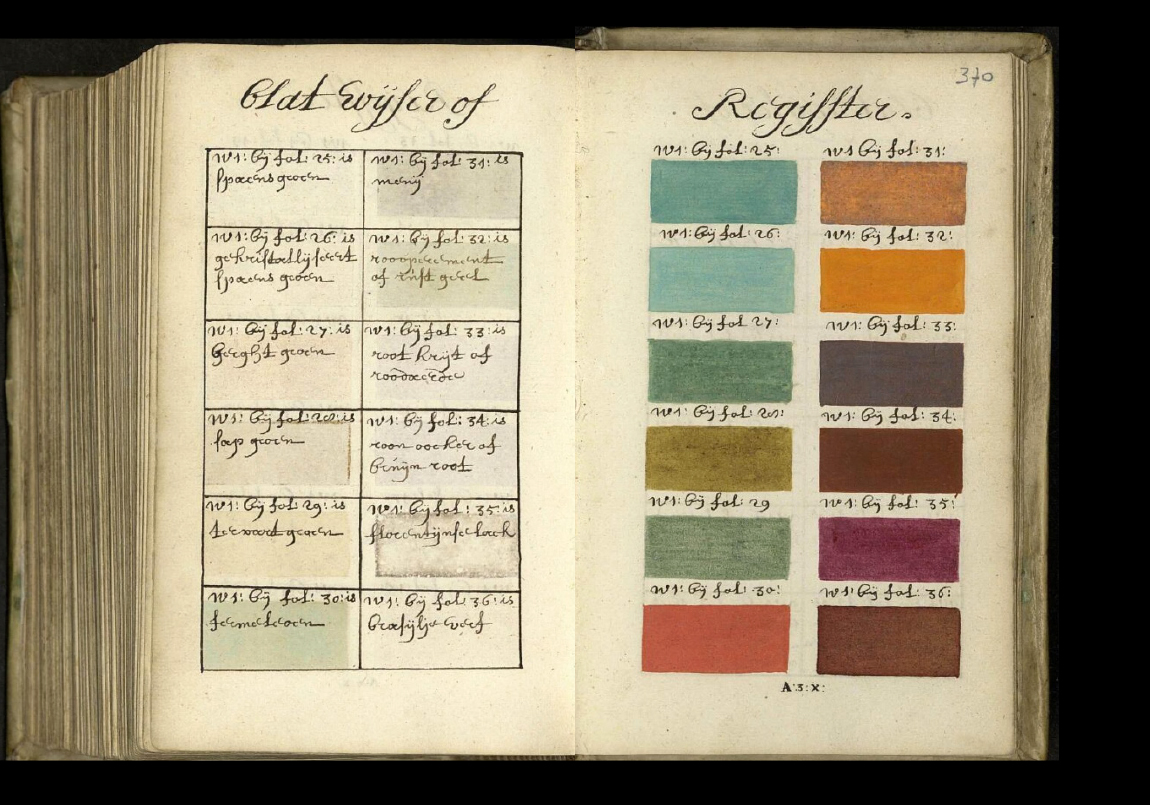 blat wijser of
w1: bij fol: 25: is
spaens groen
w1: bij fol: 31: is
menij
w1: bij fol: 26: is
gekristallijseert
spaens groen
w1: bij fol: 32: is
roooperement
of rust geel
w1: bij fol: 27: is
berght groen
w1: bij fol: 33: is
root krijt of
roodaerde
w1: bij fol: 28: is
sap groen
w1: bij fol: 34: is
roon oocker of
bruijn root
w1: bij fol: 29: is
terwart groen
w1: bij fol: 35: is
florentijnse lack
w1: bij fol: 30: is
fermeleoen
w1: bij fol: 36: is
brasijlje verf
370
Registter.
w1: bij fol: 25:
w1 bij fol: 31:
w1: bij fol: 26:
w1: bij fol: 32:
w1: bij fol 27:
w1: bij fol: 33:
w1: bij fol: 28:
w1: bij fol: 34:
w1: bij fol: 29
w1: bij fol: 35:
w1: bij fol: 30:
w1: bij fol: 36:
A:3:X: